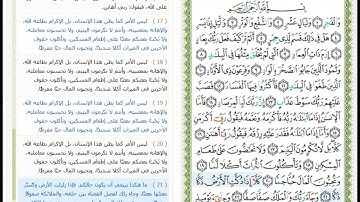 بِسْمِ اللَّهِ الرَّحْمَٰنِ الرَّحِيمِ
وَالْفَجْرِ ١ وَلَيَالٍ عَشْرٍ ٢ وَالشَّفْعِ وَالْوَتْرِ ٣ وَاللَّيْلِ إِذَا يَسْرِ ٤
هَلْ فِي ذَٰلِكَ قَسَمٌ لِّذِي حِجْرٍ ٥ أَلَمْ تَرَ كَيْفَ فَعَلَ رَبُّكَ بِعَادٍ ٦
إِرَمَ ذَاتِ الْعِمَادِ ٧ الَّتِي لَمْ يُخْلَقْ مِثْلُهَا فِي الْبِلَادِ ٨
وَثَمُودَ الَّذِينَ جَابُوا الصَّخْرَ بِالْوَادِ ٩ وَفِرْعَوْنَ ذِي الْأَوْتَادِ ١٠
الَّذِينَ طَغَوْا فِي الْبِلَادِ ١١ فَأَكْثَرُوا فِيهَا الْفَسَادَ ١٢ فَصَبَّ
عَلَيْهِمْ رَبُّكَ سَوْطَ عَذَابٍ ١٣ إِنَّ رَبَّكَ لَبِالْمِرْصَادِ ١٤ فَأَمَّا
الْإِنسَانُ إِذَا مَا ابْتَلَاهُ رَبُّهُ فَأَكْرَمَهُ وَنَعَّمَهُ فَيَقُولُ رَبِّي أَكْرَمَنِ ١٥
وَأَمَّا إِذَا مَا ابْتَلَاهُ فَقَدَرَ عَلَيْهِ رِزْقَهُ فَيَقُولُ رَبِّي أَهَانَنِ ١٦
كَلَّا بَل لَّا تُكْرِمُونَ الْيَتِيمَ ١٧ وَلَا تَحَاضُّونَ عَلَىٰ طَعَامِ الْمِسْكِينِ ١٨
وَتَأْكُلُونَ التُّرَاثَ أَكْلًا لَّمًّا ١٩ وَتُحِبُّونَ الْمَالَ حُبًّا جَمًّا ٢٠
كَلَّا إِذَا دُكَّتِ الْأَرْضُ دَكًّا دَكًّا ٢١ وَجَاءَ رَبُّكَ وَالْمَلَكُ صَفًّا صَفًّا ٢٢
على الله، فيقول: ربي أهانن.
(17) ليس الأمر كما يظن هذا الإنسان، بل الإكرام بطاعة الله،
والإهانة بمعصيته، وأنتم لا تكرمون اليتيم، ولا تحسنون معاملته،
ولا يحث بعضكم بعضًا على إطعام المسكين، وتأكلون حقوق
الآخرين في الميراث أكلا شديدًا، وتحبون المال حبًا مفرطًا.
(18) ليس الأمر كما يظن هذا الإنسان، بل الإكرام بطاعة الله،
والإهانة بمعصيته، وأنتم لا تكرمون اليتيم، ولا تحسنون معاملته،
ولا يحث بعضكم بعضًا على إطعام المسكين، وتأكلون حقوق
الآخرين في الميراث أكلا شديدًا، وتحبون المال حبًا مفرطًا.
(19) ليس الأمر كما يظن هذا الإنسان، بل الإكرام بطاعة الله،
والإهانة بمعصيته، وأنتم لا تكرمون اليتيم، ولا تحسنون معاملته،
ولا يحث بعضكم بعضًا على إطعام المسكين، وتأكلون حقوق
الآخرين في الميراث أكلا شديدًا، وتحبون المال حبًا مفرطًا.
(20) ليس الأمر كما يظن هذا الإنسان، بل الإكرام بطاعة الله،
والإهانة بمعصيته، وأنتم لا تكرمون اليتيم، ولا تحسنون معاملته،
ولا يحث بعضكم بعضًا على إطعام المسكين، وتأكلون حقوق
الآخرين في الميراث أكلا شديدًا، وتحبون المال حبًا مفرطًا.
(21) ما هكذا ينبغي أن يكون حالكم. فإذا زلزلت الأرض وكسَّر
بعضها بعضًا، وجاء ربك لفصل القضاء بين خلقه، والملائكة صفوفًا